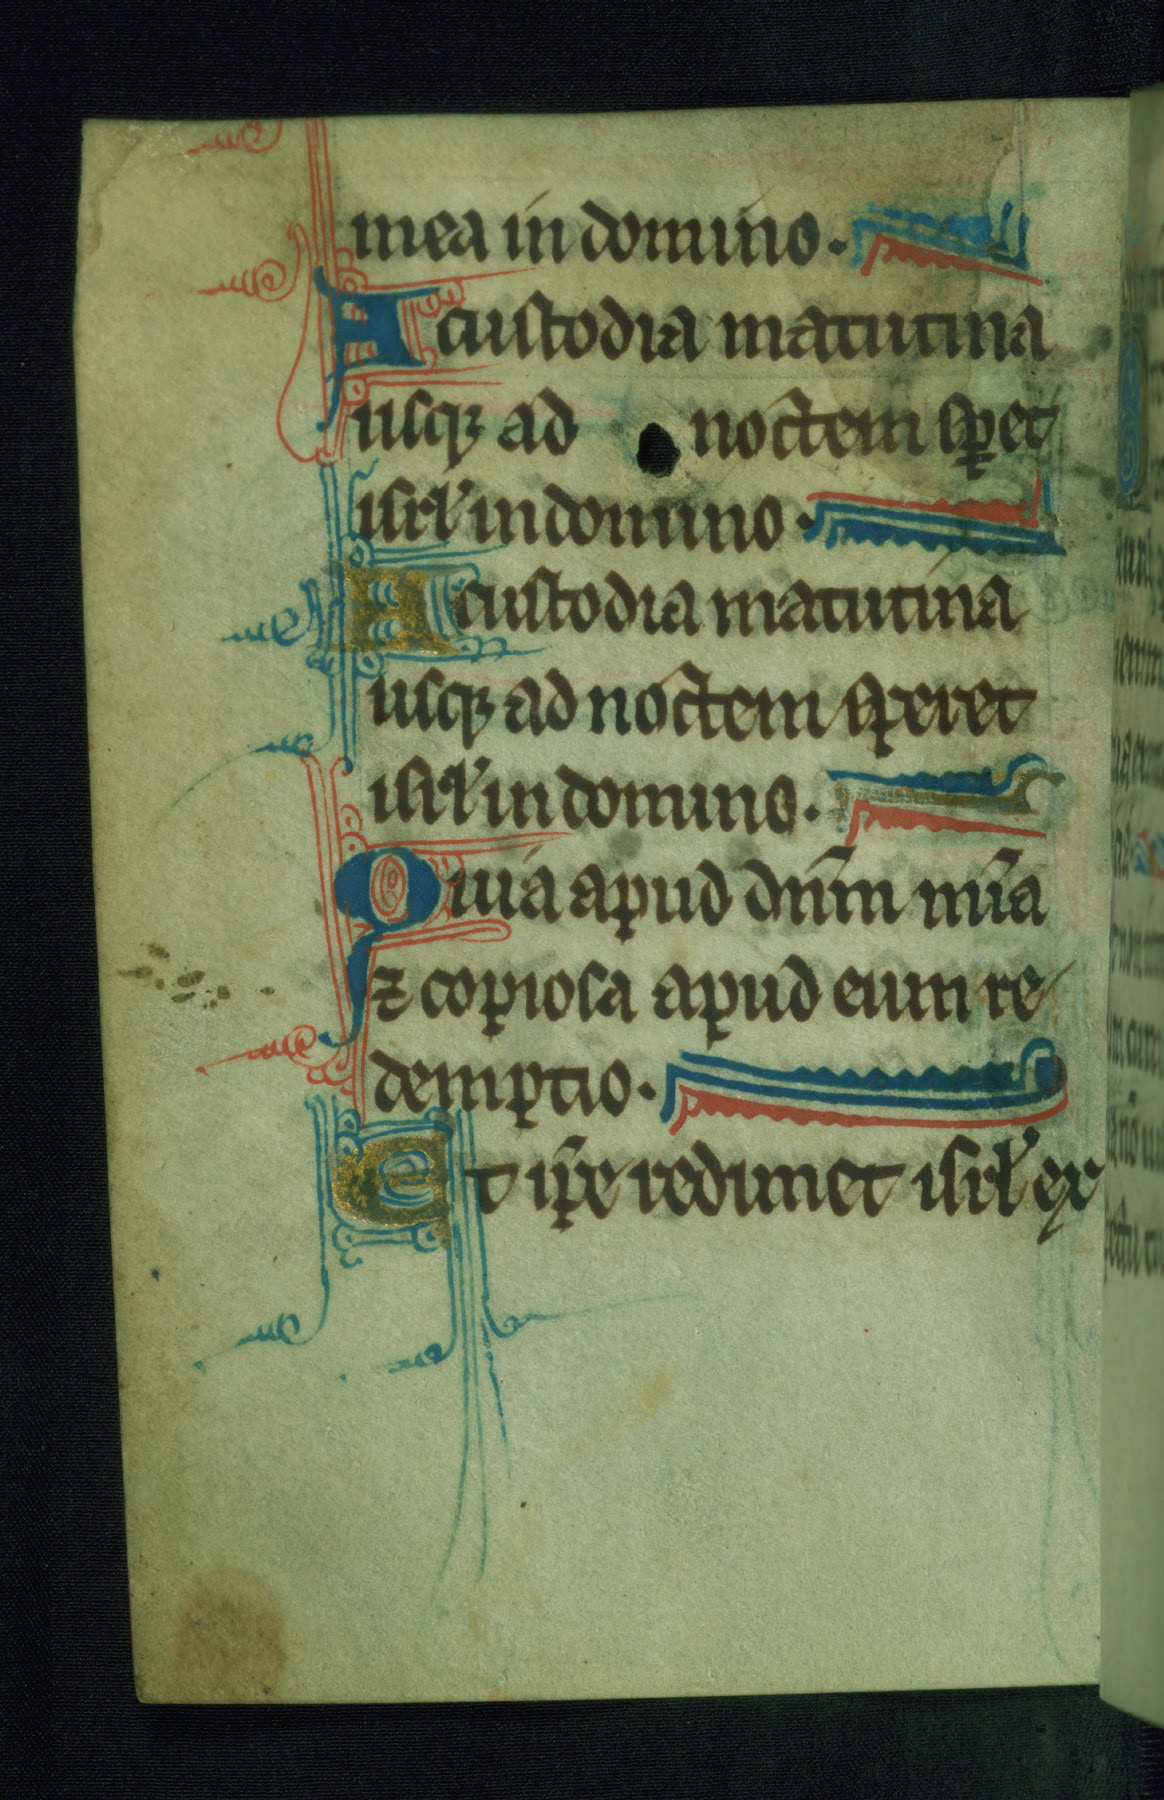 mea in domino.
A custodia matutina
usqꝫ ad noctem sꝑet
isrl̓ in domino.
A custodia matutina
usqꝫ ad noctem speret
isrl̓ in domino.
Quia apud dn̄m mīa
⁊ copiosa apud eum re
demptio.
Et ip̄e redimet isrl̓ ex